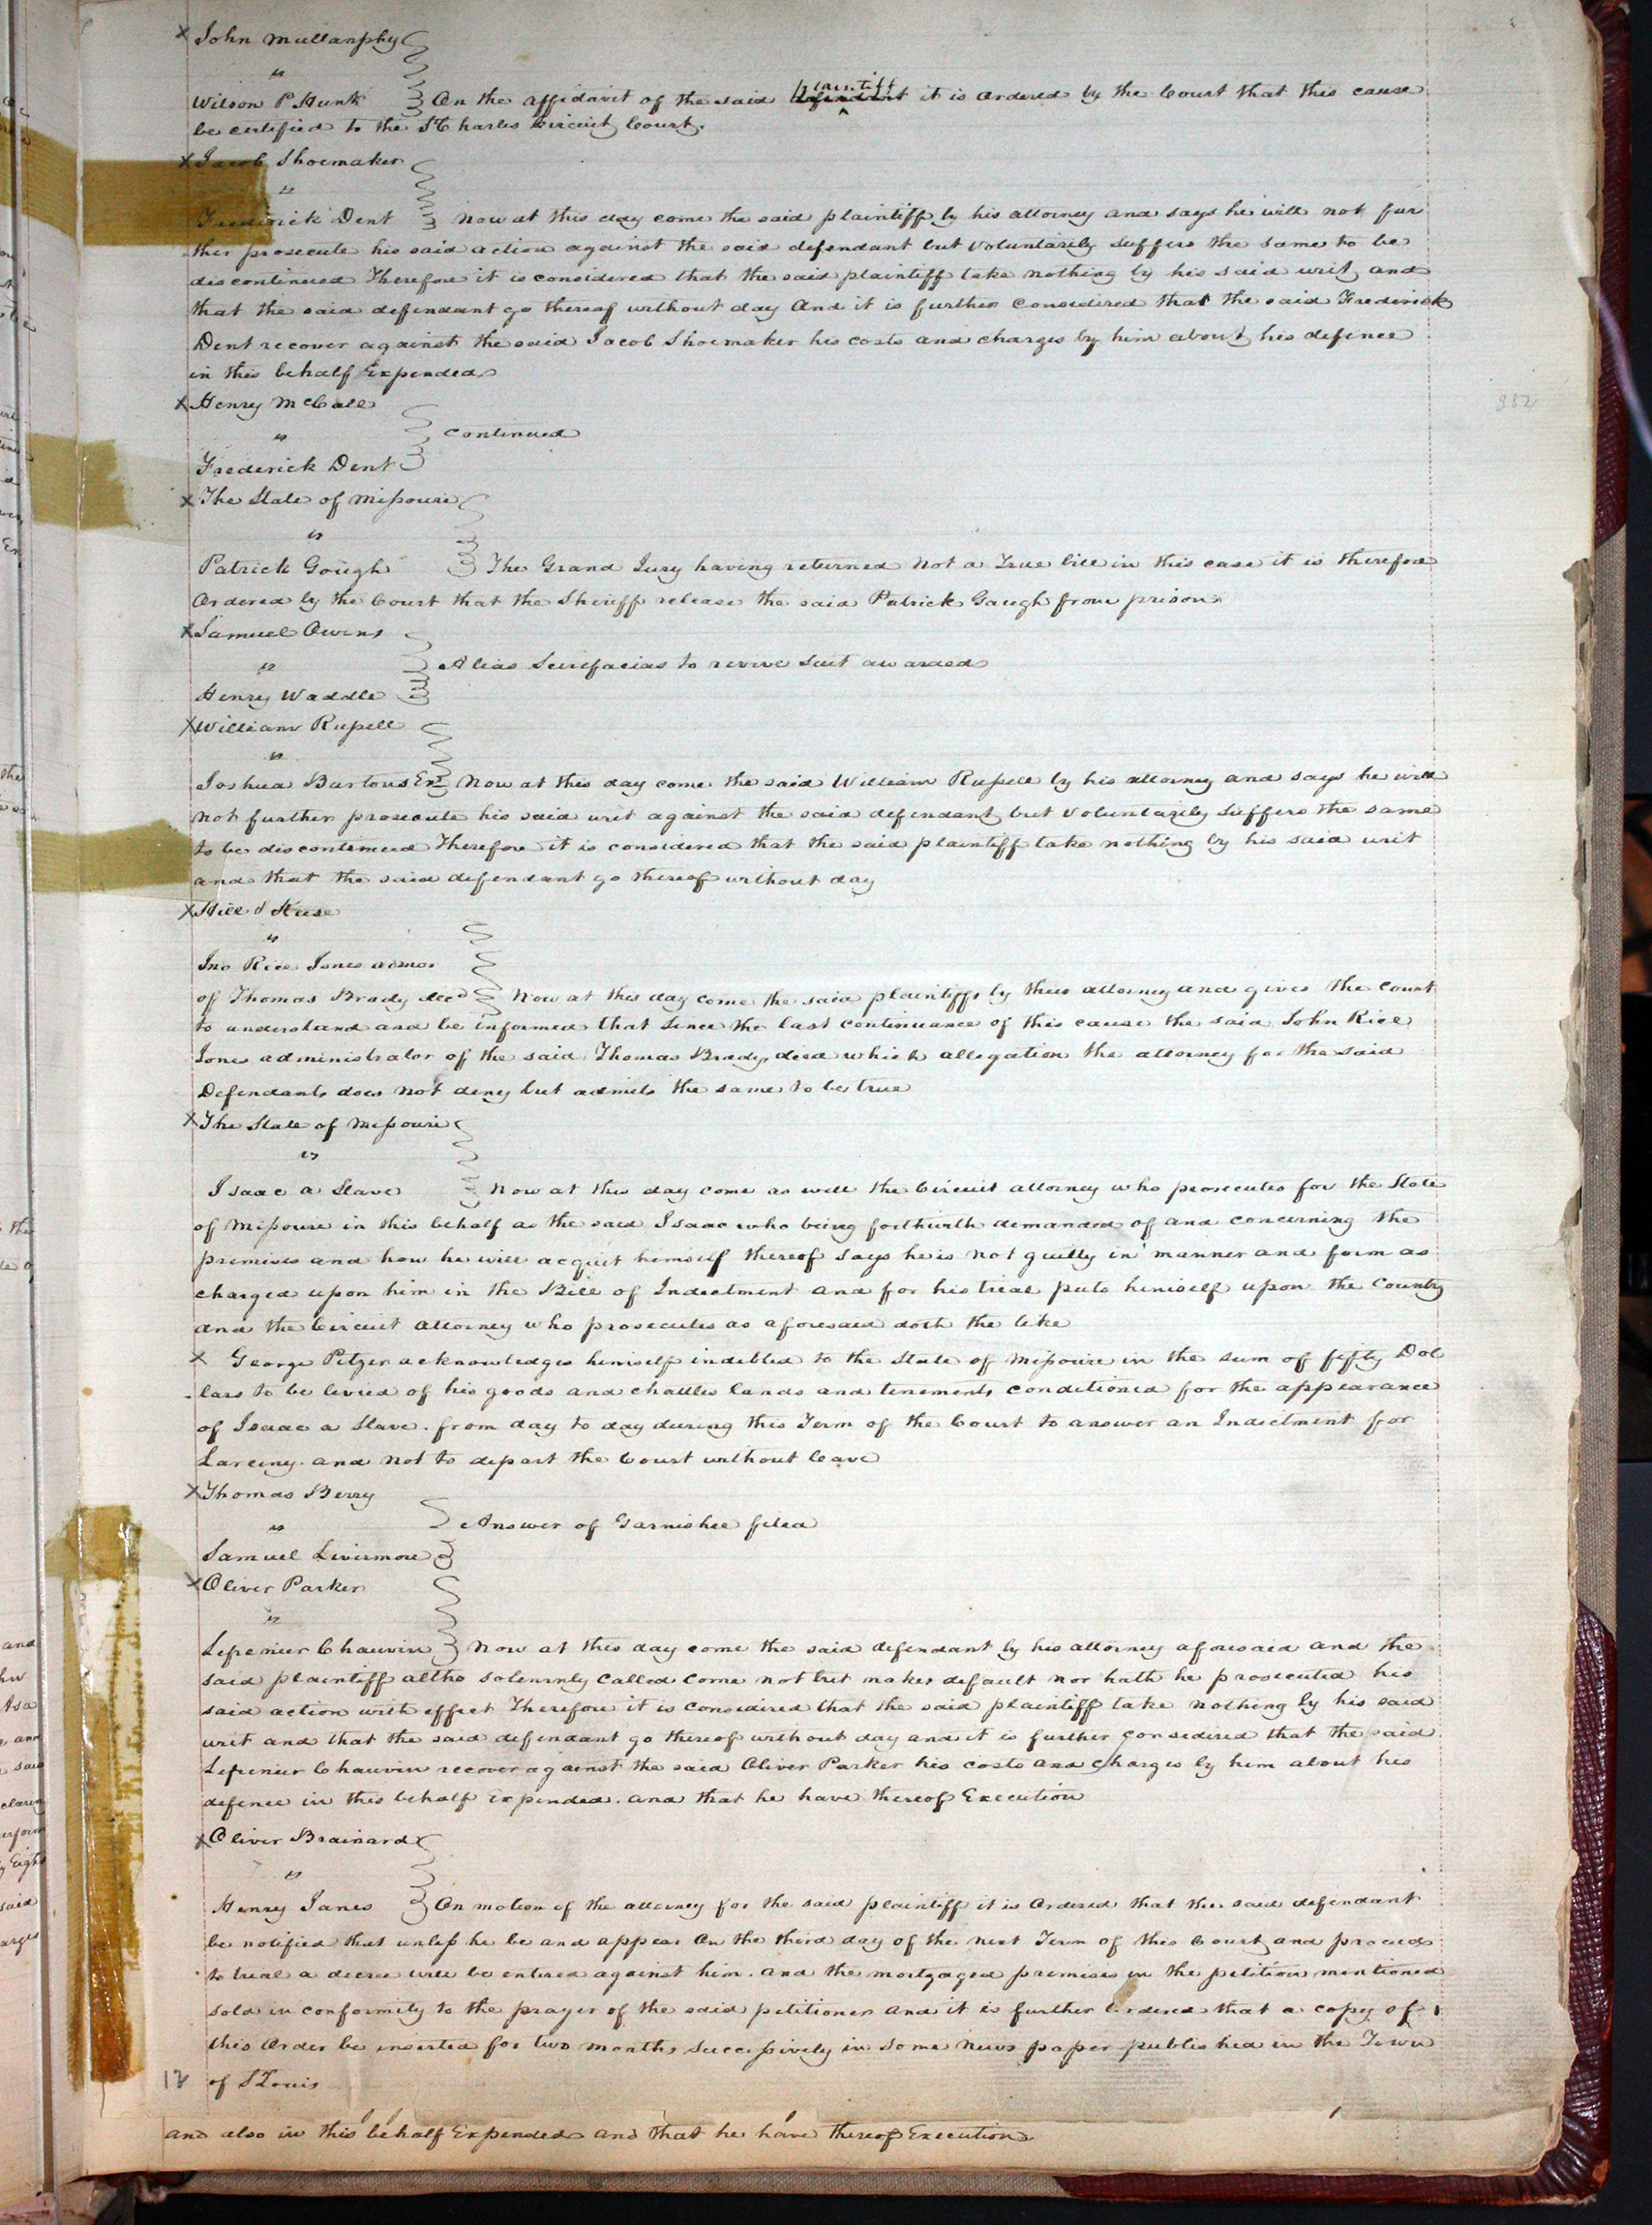 X John Mullanphy
vs
Wilson P. Hunt On the affidavit of the said plaintiff it is ordered by the Court that this cause
be certified to the St Charles Circuit Court.
X Jacob Shoemaker
vs
Frederick Dent Now at this day come the said plaintiff by his attorney and says he will not fur
ther prosecute his said action against the said defendant but voluntarily suffers the same to be
discontinued Therefore it is considered that the said plaintiff take nothing by his said writ and
that the said defendant go thereof without day And it is further considered that the said Frederick
Dent recover against the said Jacob Shoemaker his costs and charges by him about his defence
in this behalf Expended
X Henry McCale
vs continued
Frederick Dent
X The State of Missouri
vs
Patrick Gough The Grand Jury having returned Not a True bill in this case it is therefore
Ordered by the Court that the Sheriff release the said Patrick Gaugh from prison
X Samuel Owens
vs Alias Scirefacias to revive suit awarded
Henry Waddle
X William Russell
vs
Joshua Bartons Exr Now at this day come the said William Russell by his attorney and says he will
not further prosecute his said writ against the said defendant but voluntarily suffers the same
to be discontinued Therefore it is considered that the said plaintiff take nothing by his said writ
and that the said defendant go thereof without day
X Hill &
vs
Jno Rice Jones admor
of Thomas Brady decd Now at this day come the said plaintiffs by their attorney and gives the Court
to understand and be informed that since the last continuance of this cause the said John Rice
Jones administrator of the said Thomas Brady died which allegation the attorney for the said
Defendants does not deny but admits the same to be true
X The State of Missouri
vs
Isaac a Slave Now at this day come as well the Circuit attorney who prosecutes for the State
of Missouri in this behalf as the said Isaac who being forthwith demanded of and concerning the
premises and how he will acquit himself thereof says he is not guilty in manner and form as
charged upon him in the Bill of Indictment and for his trial puts himself upon the Country
and the Circuit attorney who prosecutes as aforesaid doth the like
X George Pitzer acknowledges himself indebted to the State of Missouri in the sum of fifty Dol
lars to be levied of his goods and chattles lands and tenements conditioned for the appearance
of Isaac a Slave. from day to day during this Term of the Court to answer an Indictment for
Larceny. and not to depart the Court without leave
X Thomas Berry
vs Answer of Garnishee filed
Samuel Livermore
X Oliver Parker
vs
Lefrenier Chauvin Now at this day come the said defendant by his attorney aforesaid and the
said plaintiff altho solemnly called come not but makes default nor hath he prosecuted his
said action with effect Therefore it is considered that the said plaintiff take nothing by his said
writ and that the said defendant go thereof without day and it is further considered that the said
Lefrenier Chauvin recover against the said Oliver Parker his costs and charges by him about his
defence in this behalf expended. and that he have thereof Execution
X Oliver Brainard
vs
Henry Janes On motion of the attorney for the said plaintiff it is Ordered that the said defendant
be notified that unless he be and appear On the third day of the next Term of this Court and proceed
to trial a decree will be entered against him. and the mortgaged premises in the petition mentioned
sold in conformity to the prayer of the said petitioner and it is further Ordered that a copy of
this Order be inserted for two months successively in some News paper published in the Town
of St Louis
12
and also in this behalf Expended and that he have thereof Execution